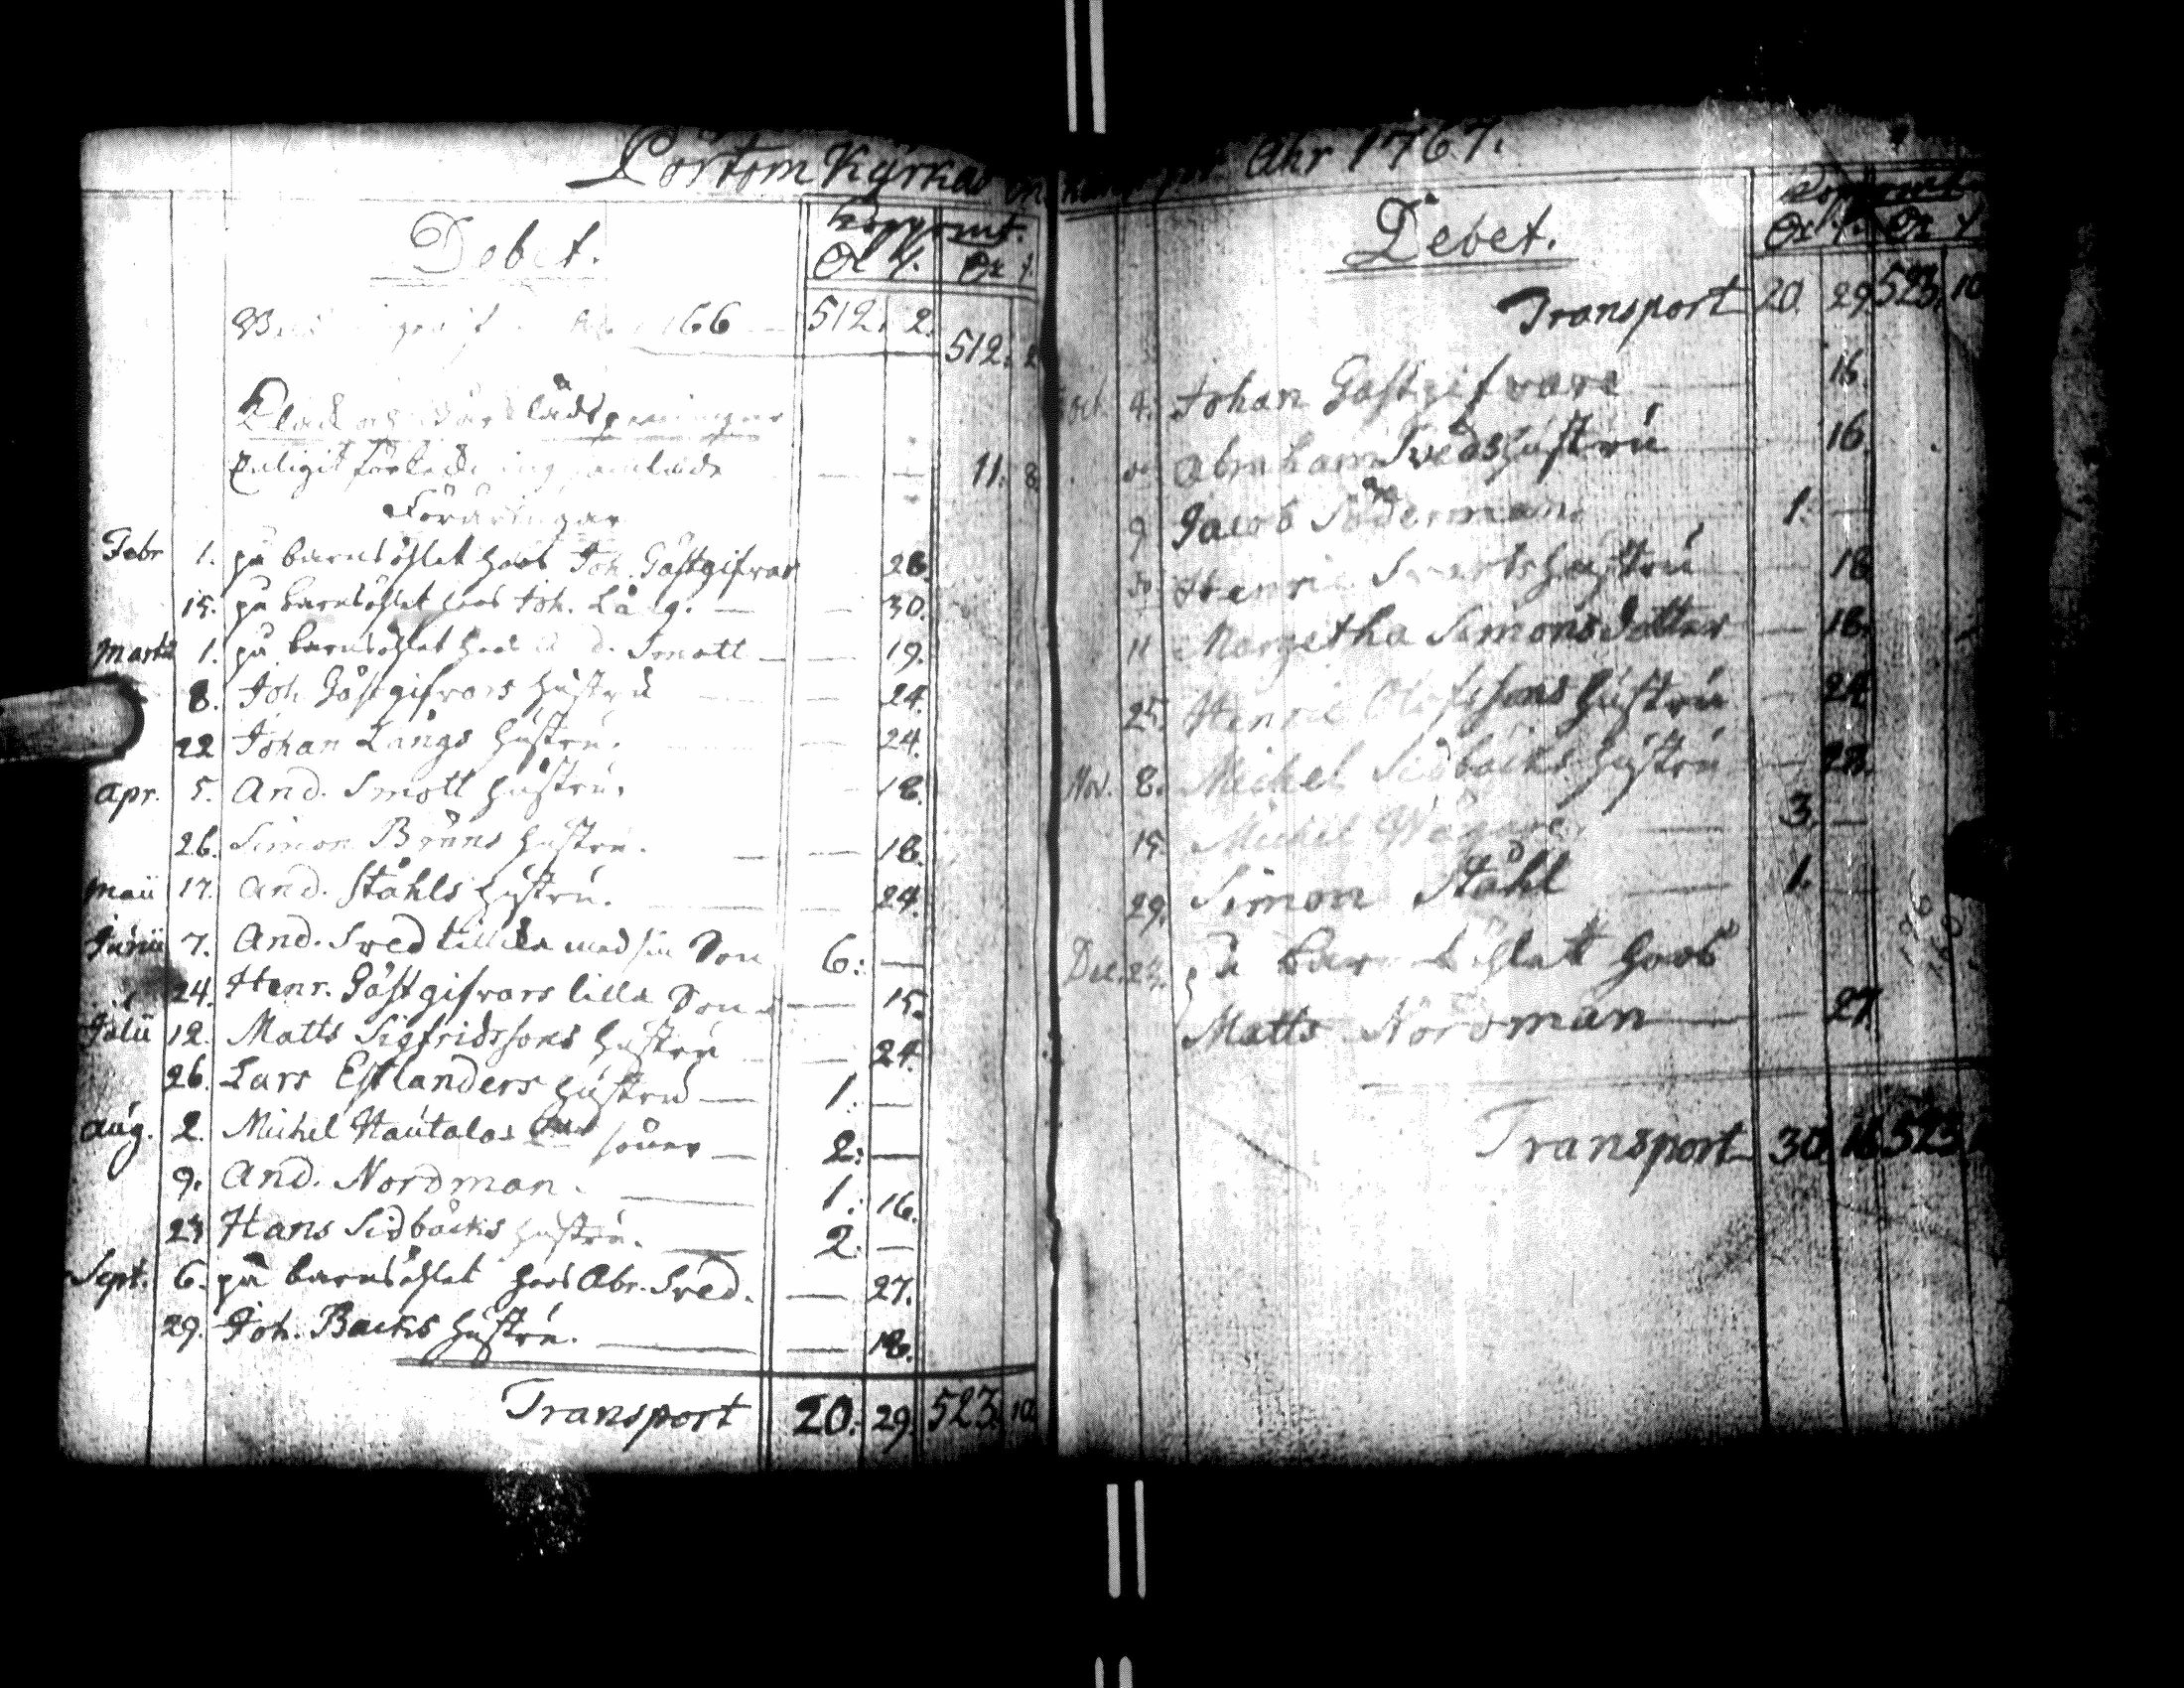 Pörtom Kyrkas Åhr 1767.
Debet.
Kopparmt.
Dr ℳ. Dr ℳ.
166 — 512. 2.
512. 2.
Enligit — — 11. 8.
Föräringar
Febr 1. på barnsöhlet hoos Joh. Gästgifvar 28.
15. på barnsöhlet hoos Joh. Lång. — — 30.
Martii 1. på barnsöhlet hoos And. Smått — — 19.
8. Joh. Gästgifvars hustru — — 24.
22 Johan Långs hustru. — — 24.
Apr. 5. And. Smått hustru. — 18.
26. Simon Bruns hustru. — — 18.
Maii 17. And. Ståhls hustru. — — 24.
Junii 7. And. Sved tillika med sin Son 6: —
24. Henr. Gästgifvars lilla Son — — 15.
Julii 12. Matts Sigfridssons hustru — — 24.
26. Lars Estlanders hustru — 1: —
Aug. 2. Michel Hautalas söner — 2: —
9. And. Nordman. — 1: 16.
23 Hans Sidbäcks hustru. — 2: —
Sept. 6. på barnsöhlet hoos Abr. Sved. — 27.
29. Joh. Backs hustru. — — 18.
Transport 20: 29. 523. 10.
Debet.
Dr ℳ. Dr ℳ
Transport 20. 29. 523. 10
Oct. 4. Johan Gästgifvare — 16.
Abraham Sveds hustru — 16.
9 Jacob Söderman. 1. —
Henric hustru — 18
11 Margetha Simonsdotter — 18.
25. Henric Olofssons hustru — 24
Nov. 8. Michel Sidbäcks hustru — 28.
15. Michel — 3. —
29. Simon Ståhl — 1. —
Dec. på barnsöhlet hoos
Matts Nordman — — 27.
Transport 30. 16 523